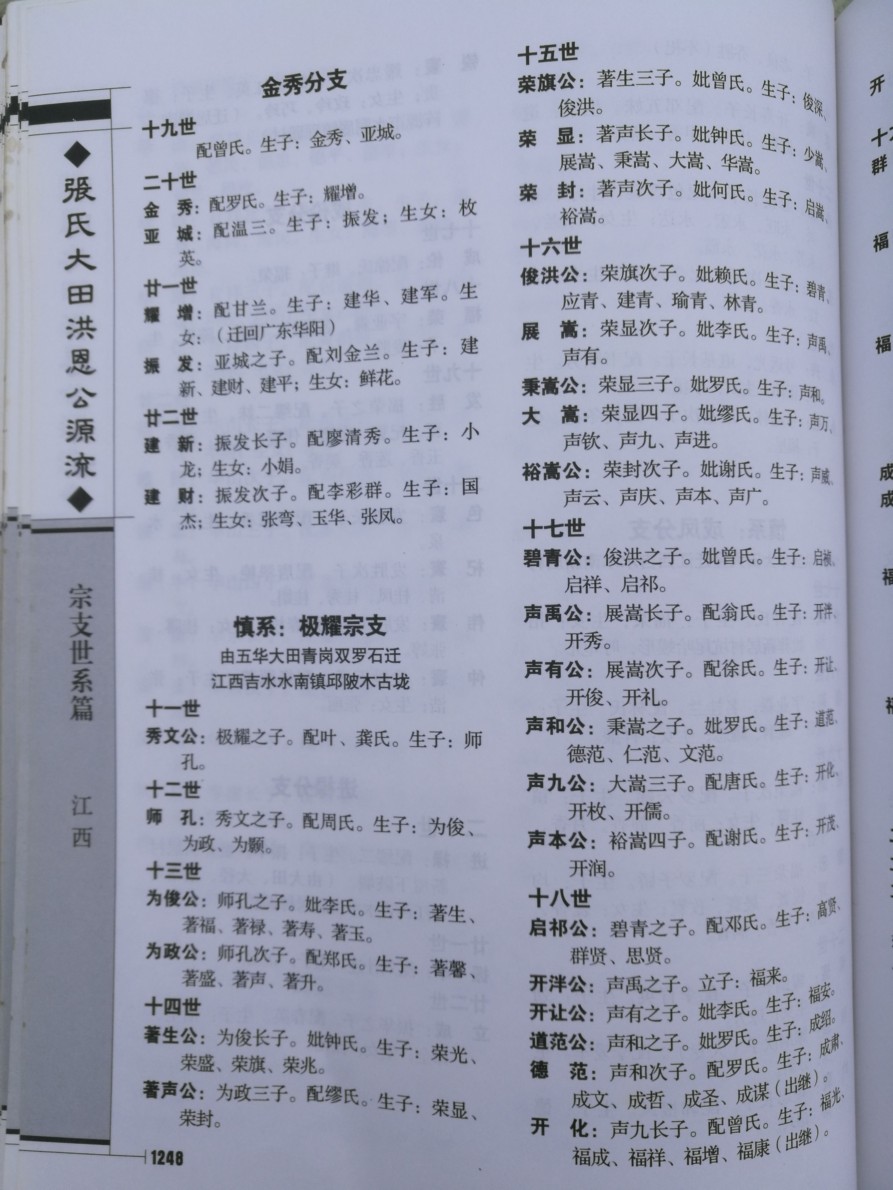 ◆張氏大田洪恩公源流◆
宗支世系篇
江西
金秀分支
十九世
配曾氏。生子：金秀、亚城。
二十世
金秀：配罗氏。生子：耀增。
亚城：配温三。生子：振发；生女：枚
英。
廿一世
耀增：配甘兰。生子：建华、建军。生
女：（迁回广东华阳）
振发：亚城之子。配刘金兰。生子：建
新、建财、建平；生女：鲜花。
廿二世
建新：振发长子。配廖清秀。生子：小
龙；生女：小娟。
建财：振发次子。配李彩群。生子：国
杰；生女：张弯、玉华、张凤。
慎系：极耀宗支
由五华大田青岗双罗石迁
江西吉水水南镇邱陂木古垅
十一世
秀文公：极耀之子。配叶、龚氏。生子：师
孔。
十二世
师孔：秀文之子。配周氏。生子：为俊、
为政、为颢。
十三世
为俊公：师孔之子。妣李氏。生子：著生、
著福、著禄、著寿、著玉。
为政公：师孔次子。配郑氏。生子：著馨、
著盛、著声、著升。
十四世
著生公：为俊长子。妣钟氏。生子：荣光、
荣盛、荣旗、荣兆。
著声公：为政三子。配缪氏。生子：荣显、
荣封。
1248
十五世
荣旗公：著生三子。妣曾氏。生子：俊深、
俊洪。
荣显：著声长子。妣钟氏。生子：少嵩、
展嵩、秉嵩、大嵩、华嵩。
荣封：著声次子。妣何氏。生子：启嵩、
裕嵩。
十六世
俊洪公：荣旗次子。妣赖氏。生子：碧青、
应青、建青、瑜青、林青。
展嵩：荣显次子。妣李氏。生子：声禹、
声有。
秉嵩公：荣显三子。妣罗氏。生子：声和。
大嵩：荣显四子。妣缪氏。生子：声万、
声钦、声九、声进。
裕嵩公：荣封次子。妣谢氏。生子：声威、
声云、声庆、声本、声广。
十七世
碧青公：俊洪之子。妣曾氏。生子：启祯、
启祥、启祁。
声禹公：展嵩长子。配翁氏。生子：开泮、
开秀。
声有公：展嵩次子。配徐氏。生子：开让、
开俊、开礼。
声和公：秉嵩之子。妣罗氏。生子：道范、
德范、仁范、文范。
声九公：大嵩三子。配唐氏。生子：开化、
开枚、开儒。
声本公：裕嵩四子。配谢氏。生子：开茂、
开润。
十八世
启祁公：碧青之子。配邓氏。生子：高贤、
群贤、思贤。
开泮公：声禹之子。立子：福来。
开让公：声有之子。妣李氏。生子：福安。
道范公：声和之子。妣罗氏。生子：成绍。
德范：声和次子。配罗氏。生子：成肃、
成文、成哲、成圣、成谋（出继）。
开化：声九长子。配曾氏。生子：福光、
福成、福祥、福增、福康（出继）。
开
群
福
福
成
成